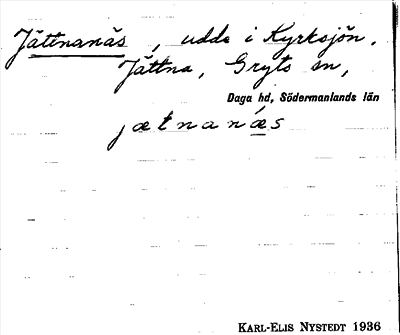 Jättnanäs, udde i Kyrksjön,
Jättna, Gryts sn,
Daga hd, Södermanlands län
jætnanǽs
KARL-ELIS NYSTEDT 1936